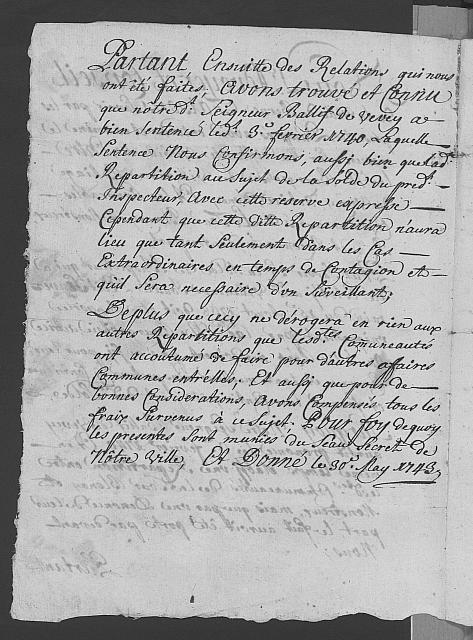 Partant Ensuitte des Relations qui nous
ont été faites, avons trouvé et Connu
que nôtre dt. Seigneur Ballif de Vevey a
bien Sentencé led. 3e. fevrier 1740, Laquelle
Sentence Nous Confirmons, aussi bien que lad.
Repartition au Sujet de la Solde du pred.
Inspecteur, avec cette reserve expresse
Cependant que cette ditte Repartition n'aura
lieu que tant Seulement dans les Cas
Extraordinaires en temps de Contagion et
quil Sera necessaire d'vn Surveillant;
Deplus que cecy ne dérogera en rien aux
autres Repartitions que lesdtes Comuneautés
ont accoutumé de faire pour d'autres affaires
Communes entr'elles; Et aussi que pour de
bonnes Considerations avons Compensés tous les
fraix Survenus à ce Sujet. Pour foy dequoy
les presentes Sont munies du Seau Secret de
Nôtre Ville, Et Donné le 30e. May 1743